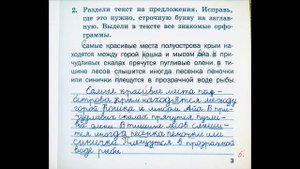 2. Раздели текст на предложения. Исправь,
где это нужно, строчную букву на заглав-
ную. Выдели в тексте все знакомые орфо-
граммы.
самые красивые места полуострова крым на-
ходятся между горой кошка и мысом айа в при-
чудливых скалах прячутся пугливые олени в
тишине лесов слышится иногда песенка пеночки
или синички плещутся в прозрачной воде рыбы
Самые красивые места пол-
острова крым находятся между
горой кошка и мысом айа. В при-
чудливых скалах прячутся пугли-
вые олени. В тишине лесов слыши-
тся иногда песенка пеночки или
синички. Плещутся в прозрачной
воде рыбы.
3